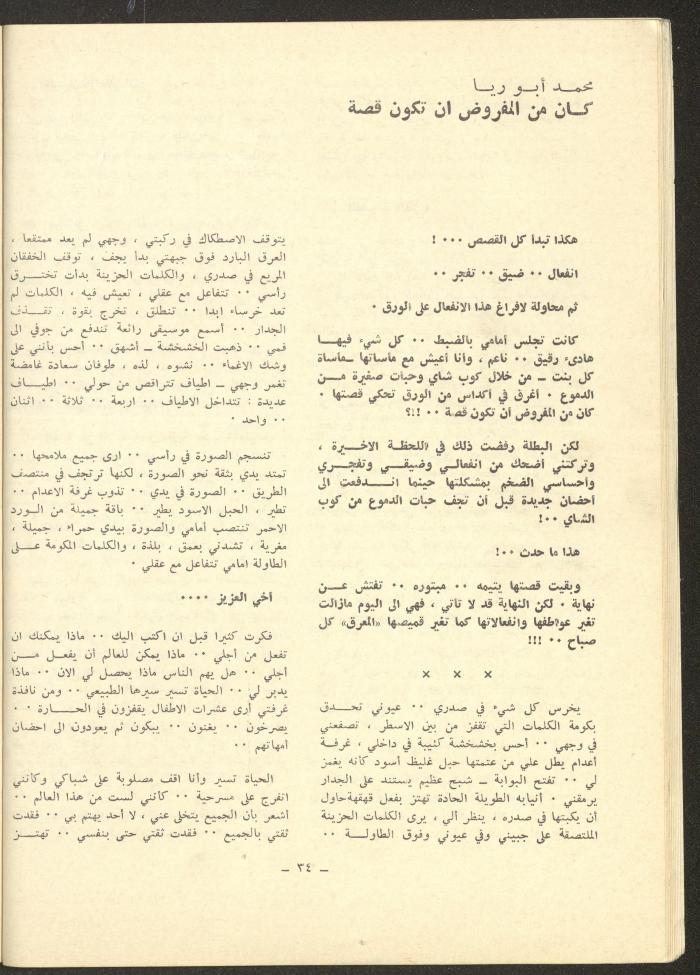 محمد أبو ريا
كان من المفروض ان تكون قصة
هكذا تبدأ كل القصص ٠٠٠ !
انفعال ٠٠ ضيق ٠٠ تفجر ٠٠
ثم محاولة لافراغ هذا الانفعال على الورق ٠
كانت تجلس أمامي بالضبط ٠٠ كل شيء فيها
هادىء رقيق ٠٠ ناعم ، وأنا أعيش مع مأساتها ــ مأساة
كل بنت ــ من خلال كوب شاي وحبات صغيرة من
الدموع ٠ أغرق في أكداس من الورق تحكي قصتها ٠
كان من المفروض أن تكون قصة ٠٠ !!؟
لكن البطلة رفضت ذلك في «للحظة الاخيرة ،
وتركتني أضحك من انفعالي وضيقي وتفجري
وأحساسي الضخم بمشكلتها حينما اندفعت الى
أحضان جديدة قبل أن تجف حبات الدموع من كوب
الشاي ٠٠!
هذا ما حدث ٠٠!
وبقيت قصتها يتيمه ٠٠ مبتوره ٠٠ تفتش عن
نهاية ٠ لكن النهاية قد لا تأتي ، فهي الى اليوم مازالت
تغير عواطفها وانفعالاتها كما تغير قميصها «المعرق» كل
صباح ٠٠ !!!
× × ×
يخرس كل شيء في صدري ٠٠ عيوني تحدق
بكومة الكلمات التي تقفز من بين الاسطر ، تصفعني
في وجهي ٠٠ أحس بخشخشة كئيبة في داخلي ، غرفة
أعدام يطل علي من عتمتها حبل غليظ أسود كأنه يغمز
لي ٠٠ تفتح البوابة ــ شبح عظيم يستند على الجدار
يرمقني ٠ أنيابه الطويلة الحادة تهتز بفعل قهقهة حاول
أن يكبتها في صدره ، ينظر ألي ، يرى الكلمات الحزينة
الملتصقة على جبيني وفي عيوني وفوق الطاولة ٠٠
يتوقف الاصطكاك في ركبتي ، وجهي لم يعد ممتقعا ،
العرق البارد فوق جبهتي بدأ يجف ، توقف الخفقان
المريع في صدري ، والكلمات الحزينة بدأت تخترق
رأسي ٠٠ تتفاعل مع عقلي ، تعيش فيه ، الكلمات لم
تعد خرساء ابدا ٠٠ تنطلق ، تخرج بقوة ، تقذف
الجدار ٠٠ أسمع موسيقى رائعة تندفع من جوفي الى
فمي ٠٠ ذهبت الخشخشة ــ أشهق ٠٠ أحس بأنني على
وشك الاغماء ٠٠ نشوه ، لذه ، طوفان سعادة غامضة
تغمر وجهي ــ اطياف تتراقص من حولي ٠٠ اطياف
عديدة : تتداخل الاطياف ٠٠ اربعة ٠٠ ثلاثة ٠٠ اثنان
٠٠ واحد ٠
تنسجم الصورة في رأسي ٠٠ ارى جميع ملامحها ٠٠
تمتد يدي بثقة نحو الصورة ، لكنها ترتجف في منتصف
الطريق ٠٠ الصورة في يدي ٠٠ تذوب غرفة الاعدام ٠٠
تطير ، الحبل الاسود يطير ٠٠ باقة جميلة من الورد
الاحمر تنتصب أمامي والصورة بيدي حمراء ، جميلة ،
مغرية ، تشدني بعمق ، بلذة ، والكلمات المكومة على
الطاولة امامي تتفاعل مع عقلي ٠
أخي العزيز ٠٠٠٠
فكرت كثيرا قبل ان اكتب اليك ٠٠ ماذا يمكنك ان
تفعل من أجلي ٠٠ ماذا يمكن للعالم أن يفعل من
أجلي ٠٠ هل يهم الناس ماذا يحصل لي الان ٠٠ ماذا
يدبر لي ٠٠ الحياة تسير سيرها الطبيعي ٠٠ ومن نافذة
غرفتي أرى عشرات الاطفال يقفزون في الحارة ٠٠
يصرخون ٠٠ يغنون ٠٠ يبكون ثم يعودون الى احضان
أمهاتهم ٠٠
الحياة تسير وأنا اقف مصلوبة على شباكي وكأنني
اتفرج على مسرحية ٠٠ كأنني لست من هذا العالم ٠٠
أشعر بأن الجميع يتخلى عني ، لا أحد يهتم بي ٠٠ فقدت
ثقتي بالجميع ٠٠ فقدت ثقتي حتى بنفسي ٠٠ تهتز
– ٣٤ –